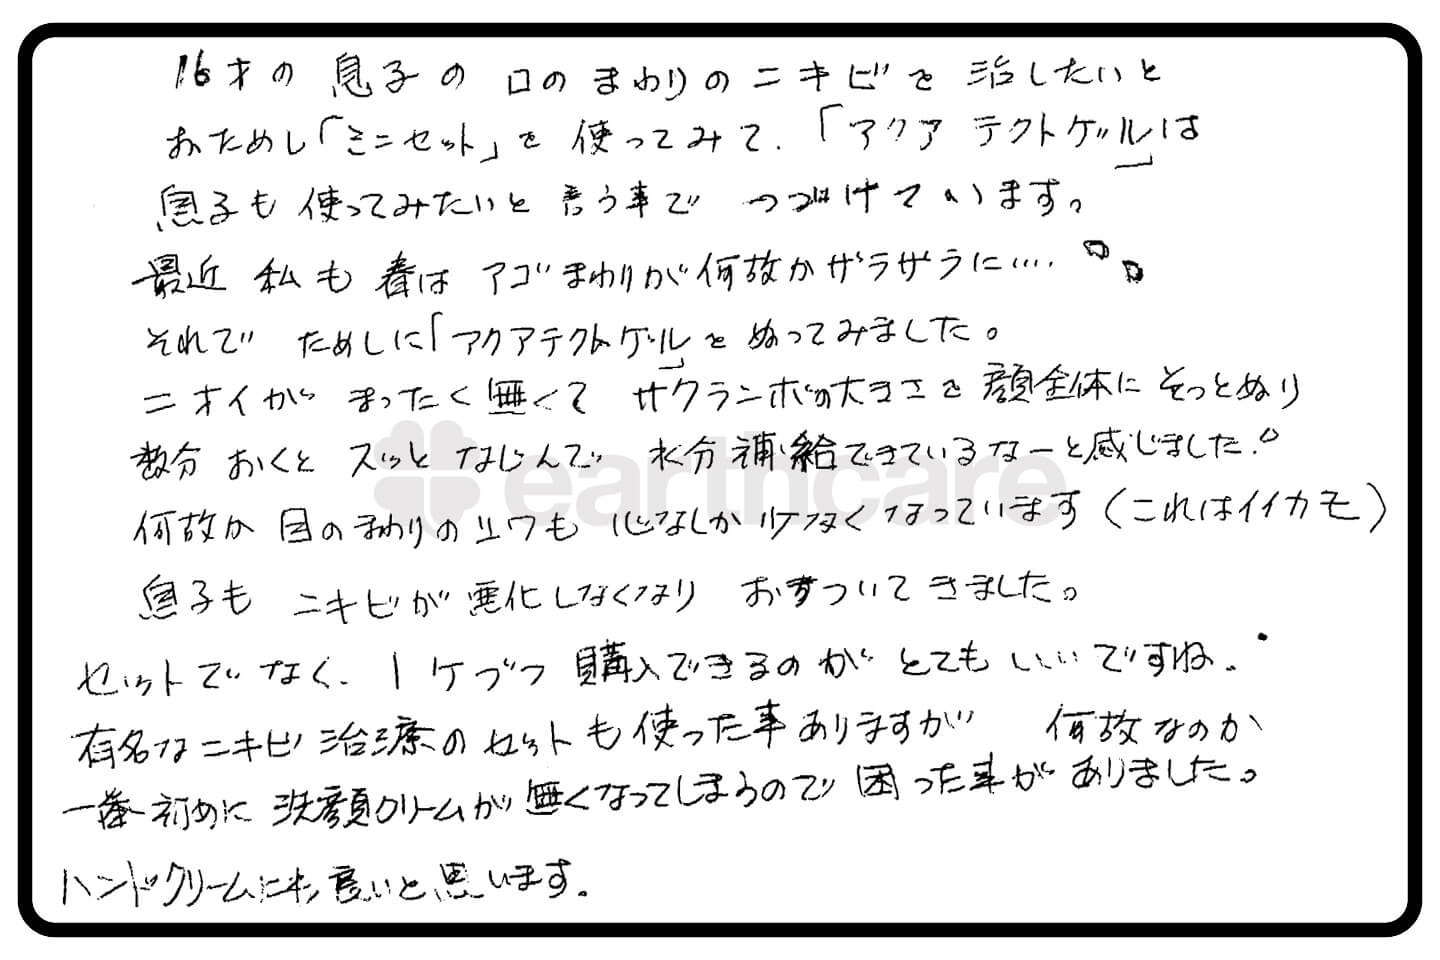 16才の 息子の 口の まわりの ニキビを 治したいと
おためし「ミニセット」を 使ってみて、「アクア テクトゲル」は
息子も 使ってみたいと 言う事で つづけています。
最近 私も 春は アゴまわりが 何故かザラザラに‥‥
それで ためしに「アクアテクトゲル」を ぬってみました。
ニオイが まったく 無くて サクランボの大きさを 顔全体に そっとぬり
数分 おくと スッと なじんで 水分補給できているなーと感じました!
earthcare
何故か 目のまわりの シワも 心なしか 少なくなっています (これはイイカモ)
息子も ニキビが 悪化しなくなり おちついて きました。
セットでなく、1ケづつ 購入できるのが とても いいですね。
有名な ニキビ 治療の セットも 使った事ありますが 何故なのか
一番 初めに 洗顔クリームが 無くなってしまうので 困った事が ありました。
ハンドクリームにも 良いと 思います。